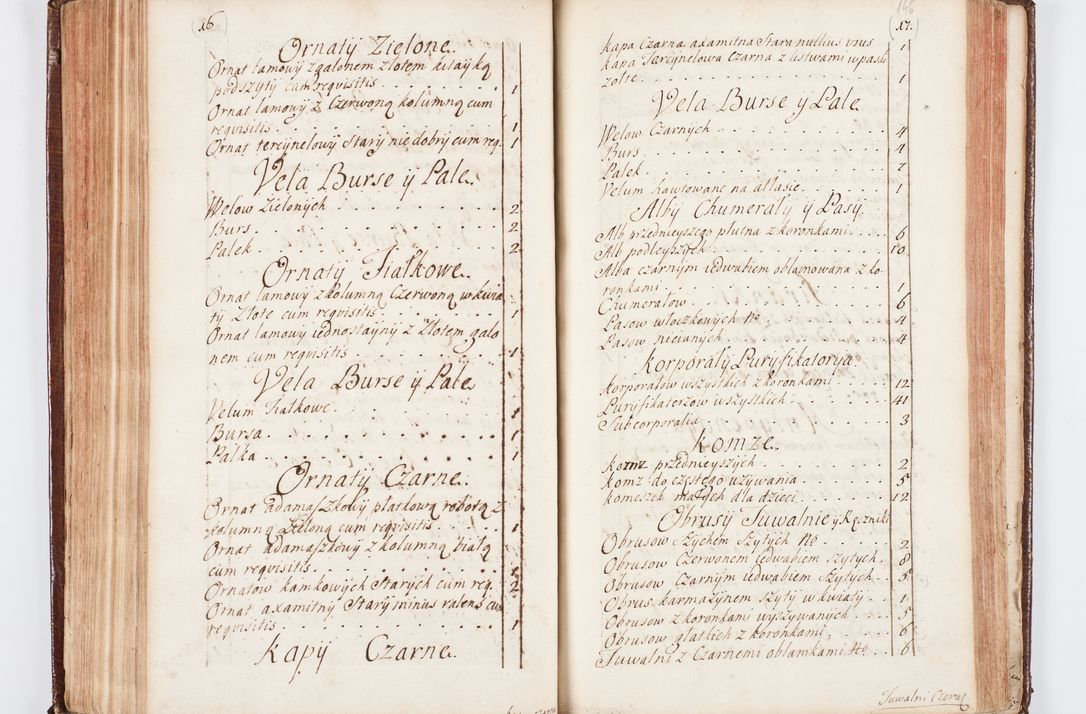 16
Ornatÿ Zielone.
Ornat lamowÿ z galonem złotem kitaÿką
podszÿtÿ cum requisitis . . . 1
Ornat lamowÿ z Czerwoną kolumną cum
requisitis . . . 1
Ornat tercÿnelowÿ starÿ nie dobrÿ cum req. 1
Vela Burse ÿ Pale.
Welow Zielonÿch . . . 2
Burs . . . 2
Palek . . . 2
Ornatÿ Fiałkowe.
Ornat lamowÿ z kolumną Czerwoną w kwia
tÿ Złote cum requisitis . . . 1
Ornat lamowÿ iednostaÿnÿ z Złotem galo
nem cum requisitis . . . 1
Vela Burse ÿ Pale
Velum Fiałkowe . . . 1
Bursa . . . 1
Palka . . . 1
Ornatÿ Czarne.
Ornat adamaszkowÿ płatkową robotą z
kolumną Zieloną cum requisitis . . . 1
Ornat adamaszkowÿ z kolumną białą
cum requisitis . . . 1
Ornatow kamkowÿch starÿch cum req. 2
Ornat axamitnÿ Starÿ minus valens cum
requisitis . . . 1
Kapÿ Czarne.
146
17.
Kapa Czarna axamitna Stara nullius usus 1
Kapa Tercÿnelowa Czarna z listwami w paski
zolte . . . 1
Vela Burse ÿ Pale
Welow Czarnÿch . . . 4
Burs . . . 4
Palek . . . 7
Velum hawtowane na atłasie . . . 1
Albÿ Chumerałÿ ÿ Pasÿ.
Alb przednieÿszego płutna z koronkami . . . 6
Alb podleÿszÿch . . . 10
Alba czarnÿm iedwabiem oblamowana z ko
ronkami . . . 1
Chumerałow . . . 6
Pasow włoczkowÿch No . . . 4
Pasow nicianÿch . . . 4
Korporałÿ Purÿfikatorÿa
Korporałow wszÿstkich z koronkami . . . 12
Purÿfikaterzow wszÿstkich . . . 41
Subcorporalia . . . 3
Komze.
Komz przednieÿszÿch . . . 2
Komz do częstego użÿwania . . . 5
Komeszek małÿch dla dzieci . . . 12
Obrusÿ Tuwalnie ÿ Ręczniki
Obrusow Szÿchem szÿtÿch No . . . 2
Obrusow Czerwonem iedwabiem szÿtÿch . 8
Obrusow Czarnÿm iedwabiem szÿtÿch . . 5
Obrus karmazÿnem szÿtÿ w kwiatÿ . . 1
Obrusow z koronkami wÿszÿwanÿch . . . 5
Obrusow głatkich z koronkami . . . 6
Tuwalni z Czarnemi oblamkami No . . . 6
Tuwalni Czerw